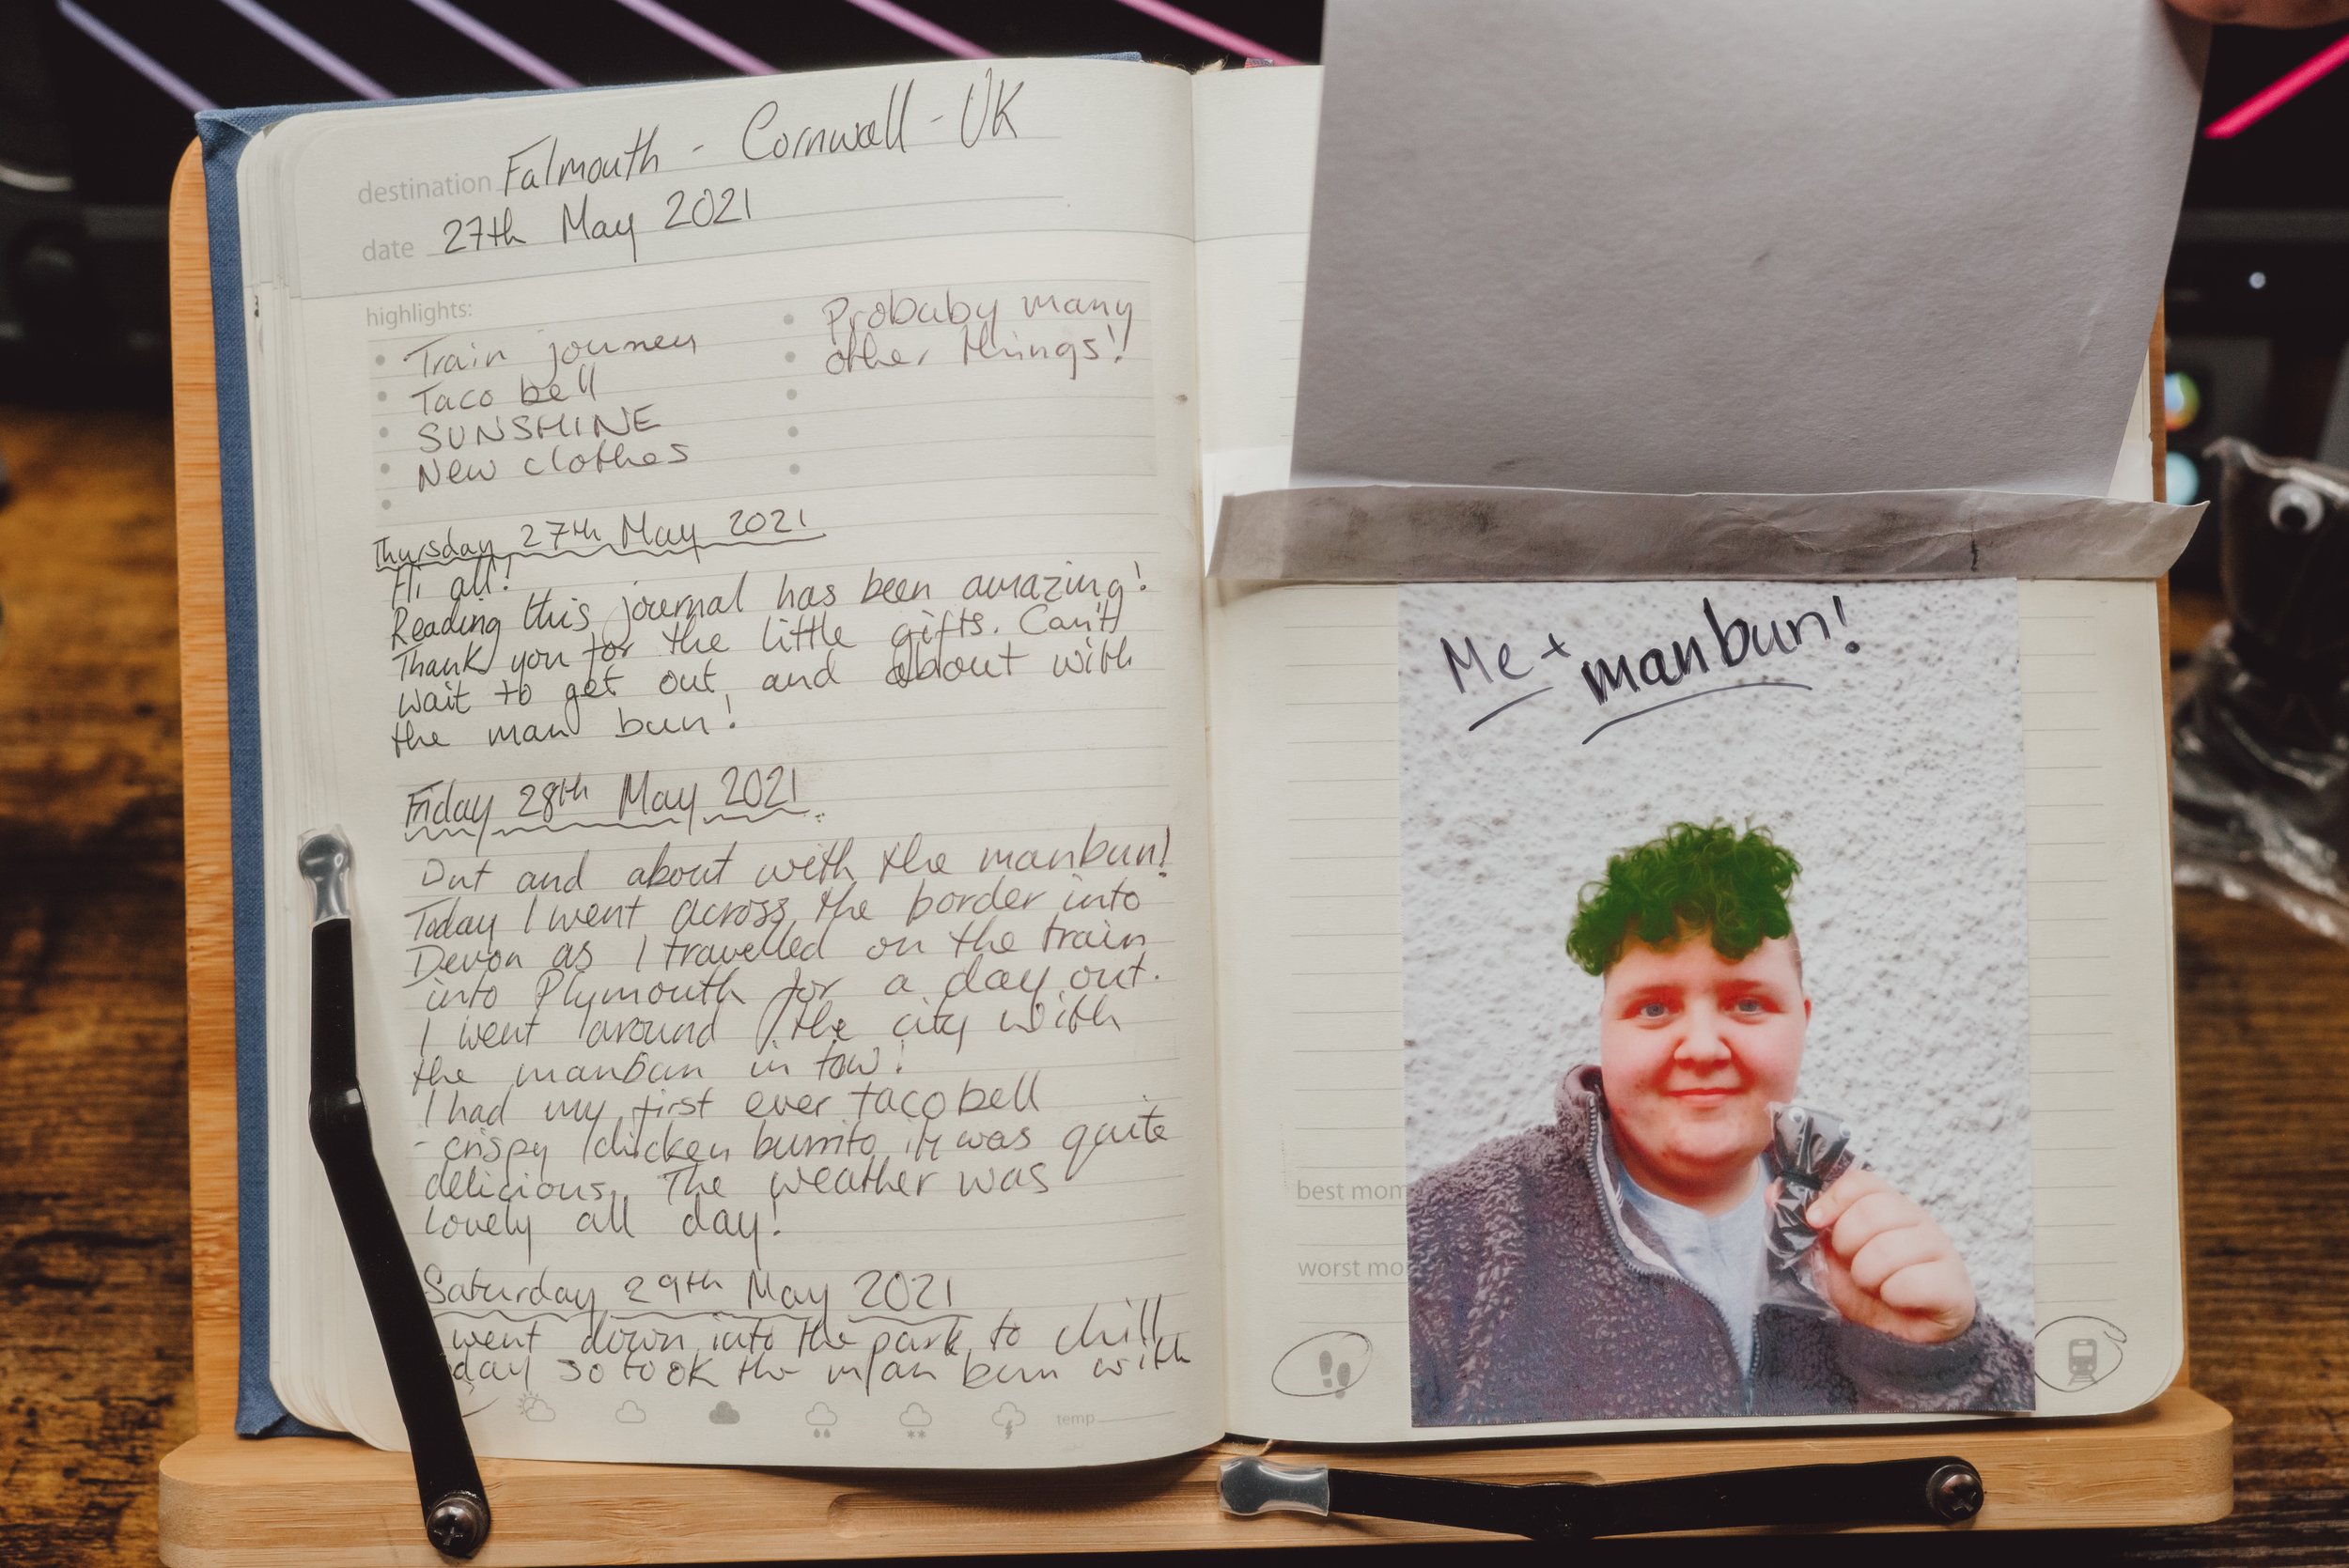 destination Falmouth - Cornwall - UK
date 27th May 2021
highlights:
Train journey
Taco bell
SUNSHINE
New clothes
Probaby many
other things!
Thursday 27th May 2021
Hi all!
Reading this journal has been amazing!
Thank you for the little gifts. Can't
wait to get out and about with
the man bun!
Friday 28th May 2021
Out and about with the manbun!
Today I went across the border into
Devon as I travelled on the train
into Plymouth for a day out.
I went around the city with
the manbun in tow!
I had my first ever taco bell
- crispy chicken burrito it was quite
delicious. The weather was
lovely all day!
Saturday 29th May 2021
went down into the park to chill
day so took the man bun with
temp
Me + manbun!
best mom
worst mo